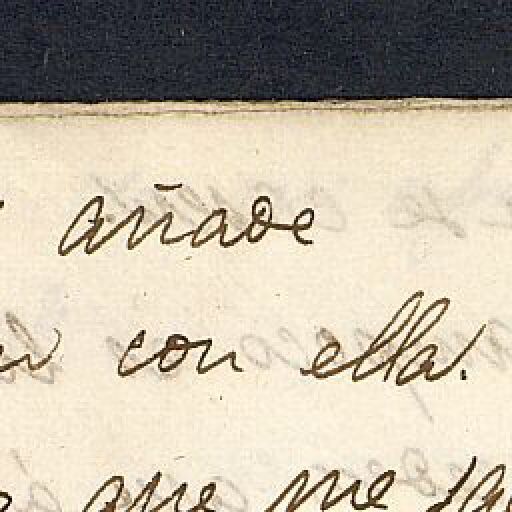 añade
con ella.
que me